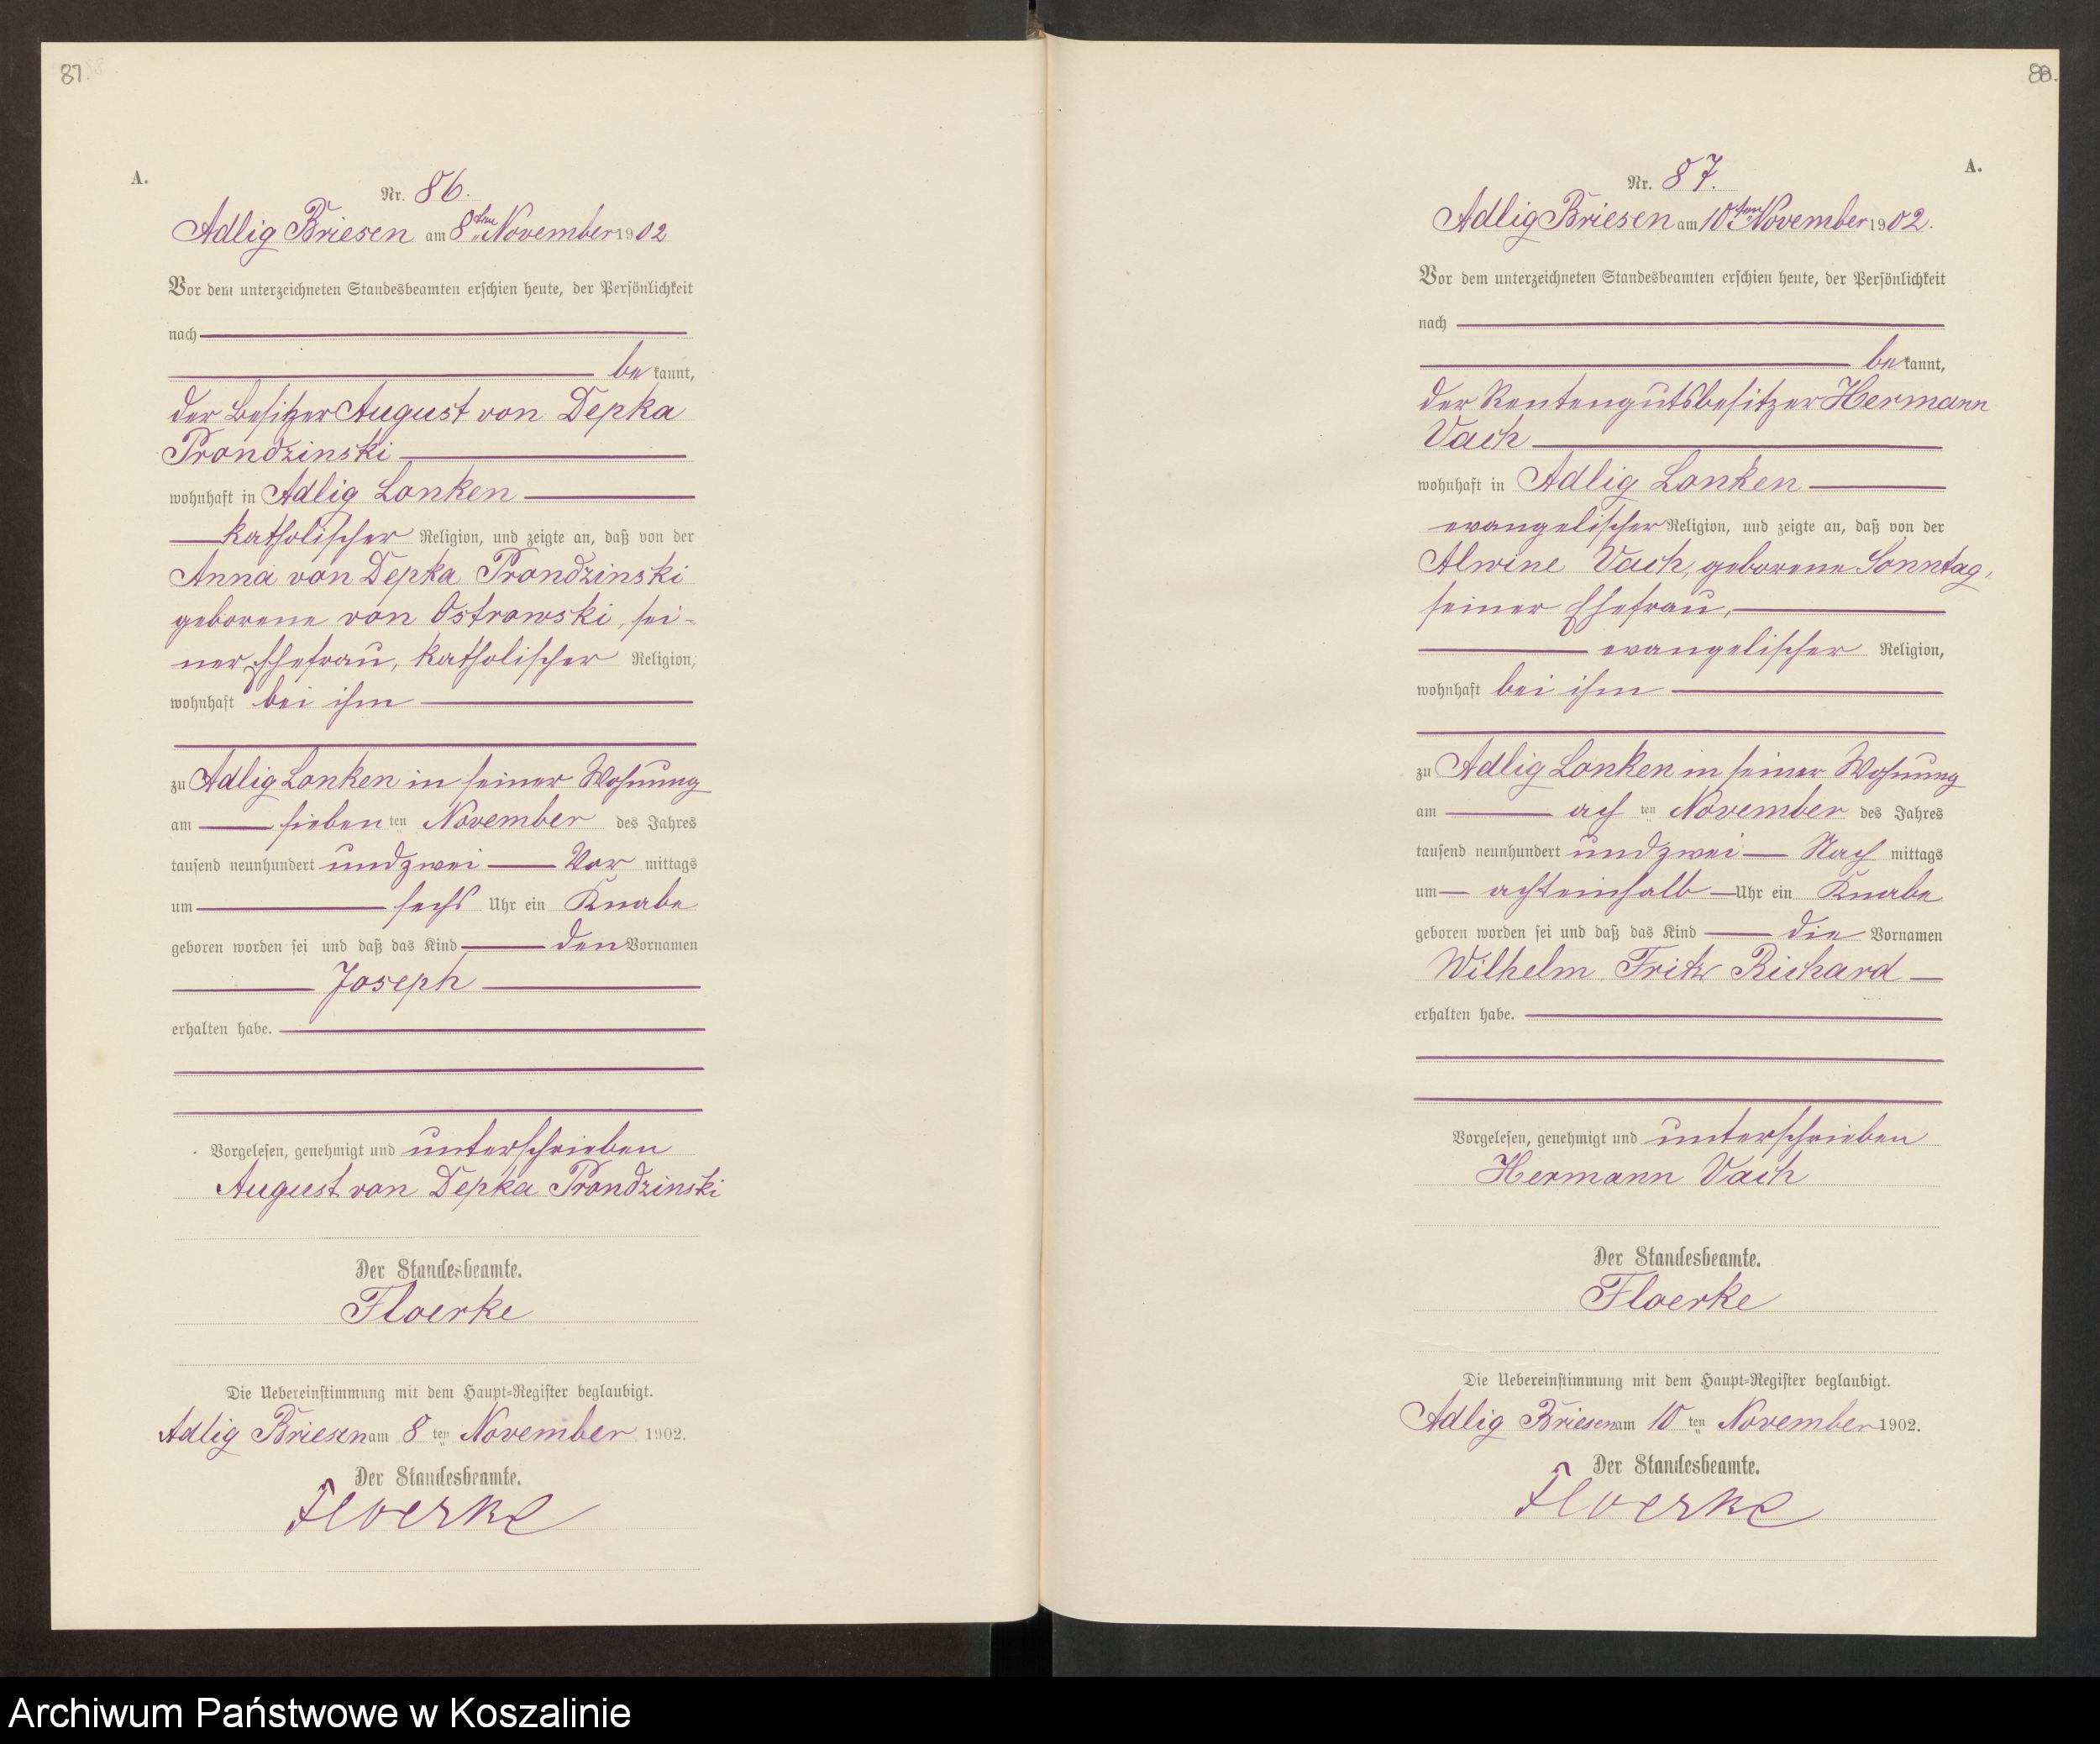 87.
A.
Nr. 86.
Adlig Briesen am 8ten November 1902
Vor dem unterzeichneten Standesbeamten erschien heute, der Persönlichkeit
nach
be kannt,
der Besitzer August von Depka
Prondzinski
wohnhaft in Adlig Lonken
katholischer Religion, und zeigte an, daß von der
Anna von Depka Prondzinski
geborene von Ostrowski, sei-
ner Ehefrau, katholischer Religion,
wohnhaft bei ihm
zu Adlig Lonken in seiner Wohnung
am sieben ten November des Jahres
tausend neunhundert und zwei Vor mittags
um sechs Uhr ein Knabe
geboren worden sei und daß das Kind den Vornamen
Joseph
erhalten habe.
Vorgelesen, genehmigt und unterschrieben
August von Depka Prondzinski
Der Standesbeamte.
Floerke
Die Uebereinstimmung mit dem Haupt-Register beglaubigt.
Adlig Briesen am 8 ten November 1902.
Der Standesbeamte.
Floerke
88.
A.
Nr. 87.
Adlig Briesen am 10ten November 1902.
Vor dem unterzeichneten Standesbeamten erschien heute, der Persönlichkeit
nach
be kannt,
der Rentengutsbesitzer Hermann
Vach
wohnhaft in Adlig Lonken
evangelischer Religion, und zeigte an, daß von der
Alwine Vach, geborene Sonntag,
seiner Ehefrau,
evangelischer Religion,
wohnhaft bei ihm
zu Adlig Lonken in seiner Wohnung
am ach ten November des Jahres
tausend neunhundert und zwei Nach mittags
um achteinhalb Uhr ein Knabe
geboren worden sei und daß das Kind die Vornamen
Wilhelm Fritz Richard
erhalten habe.
Vorgelesen, genehmigt und unterschrieben
Hermann Vach
Der Standesbeamte.
Floerke
Die Uebereinstimmung mit dem Haupt-Register beglaubigt.
Adlig Briesen am 10 ten November 1902.
Der Standesbeamte.
Floerke
Archiwum Państwowe w Koszalinie